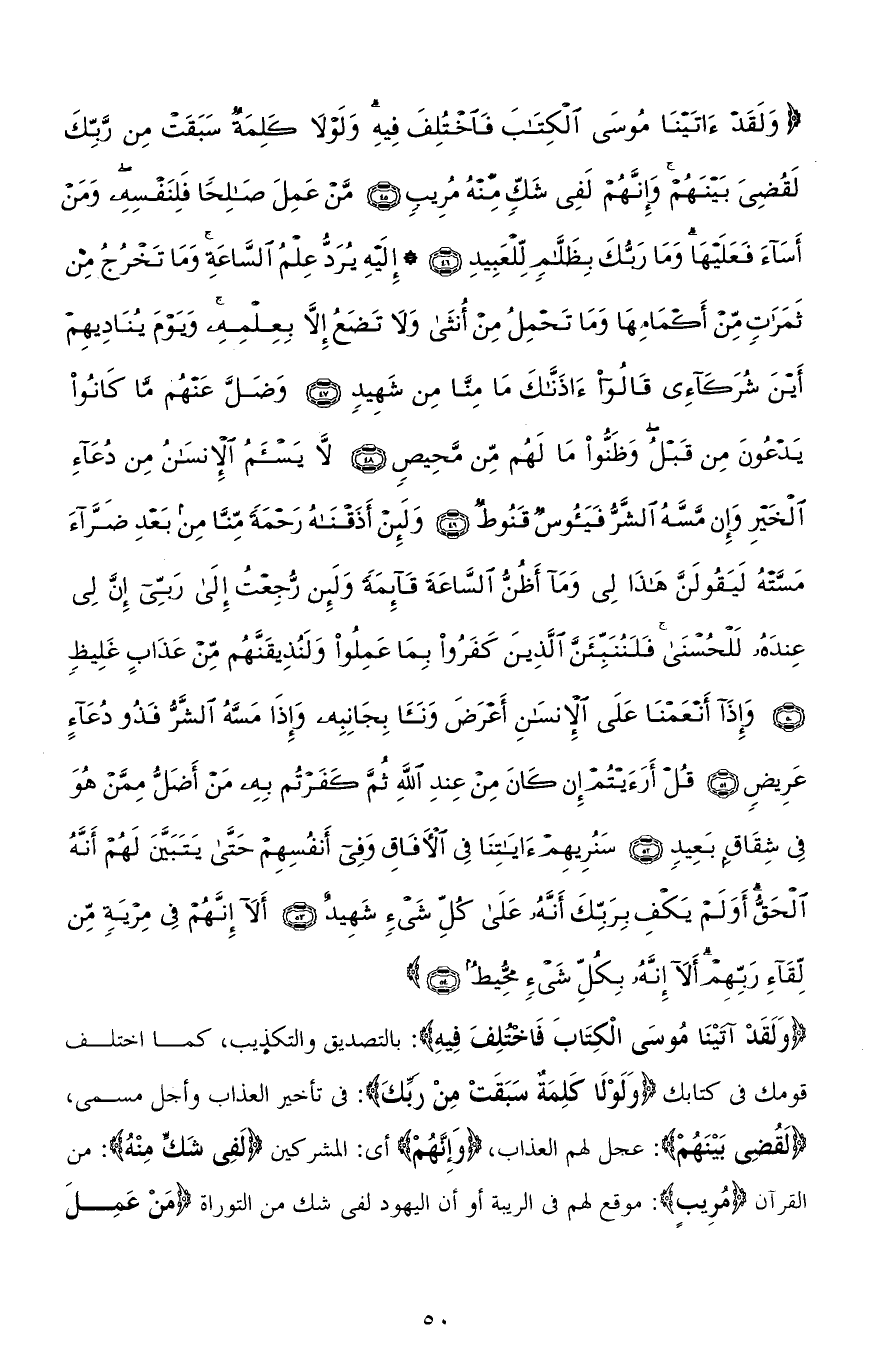 ﴿ وَلَقَدْ ءَاتَيْنَا مُوسَى ٱلْكِتَٰبَ فَٱخْتُلِفَ فِيهِۗ وَلَوْلَا كَلِمَةٌ سَبَقَتْ مِن رَّبِّكَ
لَقُضِىَ بَيْنَهُمْۚ وَإِنَّهُمْ لَفِى شَكٍّ مِّنْهُ مُرِيبٍ ۝٤٥ مَّنْ عَمِلَ صَٰلِحًا فَلِنَفْسِهِۦۖ وَمَنْ
أَسَآءَ فَعَلَيْهَاۗ وَمَا رَبُّكَ بِظَلَّٰمٍ لِّلْعَبِيدِ ۝٤٦ * إِلَيْهِ يُرَدُّ عِلْمُ ٱلسَّاعَةِۚ وَمَا تَخْرُجُ مِن
ثَمَرَٰتٍ مِّنْ أَكْمَامِهَا وَمَا تَحْمِلُ مِنْ أُنثَىٰ وَلَا تَضَعُ إِلَّا بِعِلْمِهِۦۚ وَيَوْمَ يُنَادِيهِمْ
أَيْنَ شُرَكَآءِى قَالُوٓا۟ ءَاذَنَّٰكَ مَا مِنَّا مِن شَهِيدٍ ۝٤٧ وَضَلَّ عَنْهُم مَّا كَانُوا۟
يَدْعُونَ مِن قَبْلُۖ وَظَنُّوا۟ مَا لَهُم مِّن مَّحِيصٍ ۝٤٨ لَّا يَسْـَٔمُ ٱلْإِنسَٰنُ مِن دُعَآءِ
ٱلْخَيْرِ وَإِن مَّسَّهُ ٱلشَّرُّ فَيَـُٔوسٌ قَنُوطٌ ۝٤٩ وَلَئِنْ أَذَقْنَٰهُ رَحْمَةً مِّنَّا مِنۢ بَعْدِ ضَرَّآءَ
مَسَّتْهُ لَيَقُولَنَّ هَٰذَا لِى وَمَآ أَظُنُّ ٱلسَّاعَةَ قَآئِمَةً وَلَئِن رُّجِعْتُ إِلَىٰ رَبِّىٓ إِنَّ لِى
عِندَهُۥ لَلْحُسْنَىٰۚ فَلَنُنَبِّئَنَّ ٱلَّذِينَ كَفَرُوا۟ بِمَا عَمِلُوا۟ وَلَنُذِيقَنَّهُم مِّنْ عَذَابٍ غَلِيظٍ
۝٥٠ وَإِذَآ أَنْعَمْنَا عَلَى ٱلْإِنسَٰنِ أَعْرَضَ وَنَـَٔا بِجَانِبِهِۦ وَإِذَا مَسَّهُ ٱلشَّرُّ فَذُو دُعَآءٍ
عَرِيضٍ ۝٥١ قُلْ أَرَءَيْتُمْ إِن كَانَ مِنْ عِندِ ٱللَّهِ ثُمَّ كَفَرْتُم بِهِۦ مَنْ أَضَلُّ مِمَّنْ هُوَ
فِى شِقَاقٍۭ بَعِيدٍ ۝٥٢ سَنُرِيهِمْ ءَايَٰتِنَا فِى ٱلْءَافَاقِ وَفِىٓ أَنفُسِهِمْ حَتَّىٰ يَتَبَيَّنَ لَهُمْ أَنَّهُ
ٱلْحَقُّۗ أَوَلَمْ يَكْفِ بِرَبِّكَ أَنَّهُۥ عَلَىٰ كُلِّ شَىْءٍ شَهِيدٌ ۝٥٣ أَلَآ إِنَّهُمْ فِى مِرْيَةٍ مِّن
لِّقَآءِ رَبِّهِمْۗ أَلَآ إِنَّهُۥ بِكُلِّ شَىْءٍ مُّحِيطٌۢ ۝٥٤ ﴾
﴿وَلَقَدْ آتَيْنَا مُوسَى الْكِتَابَ فَاخْتُلِفَ فِيهِ﴾: بالتصديق والتكذيب، كمـــا اختلــف
قومك فى كتابك ﴿وَلَوْلَا كَلِمَةٌ سَبَقَتْ مِنْ رَبِّكَ﴾: فى تأخير العذاب وأجل مســمى،
﴿لَقُضِى بَيْنَهُمْ﴾: عجل لهم العذاب، ﴿وَإِنَّهُمْ﴾ أى: المشركين ﴿لَفِى شَكٍّ مِنْهُ﴾: من
القرآن ﴿مُرِيبٍ﴾: موقع لهم فى الريبة أو أن اليهود لفى شك من التوراة ﴿مَنْ عَمِـــلَ
٥٠